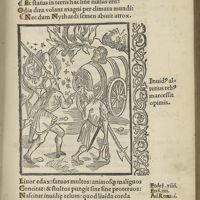 Et status in terris hac sine nullus erit:
Odia dira volant magni per climata mundi:
Nec dum Nythardi semen abiuit atrox.
Inuidꝰ al-
terius rebꝰ
marcessit
opimis.
Liuor edax: fatuos multos: animosqꝫ malignos
Concitat: & stultos pungit sine fine proteruos:
Nascitur inuidię telum: quod liuida corda